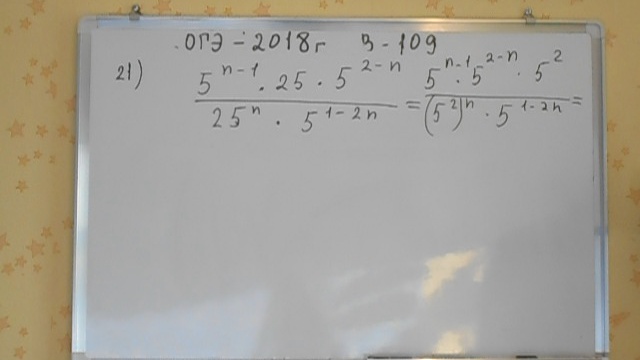 ОГЭ - 2018г В - 109
21) \frac{5^{n-1} \cdot 25 \cdot 5^{2-n}}{25^{n} \cdot 5^{1-2n}} = \frac{5^{n-1} \cdot 5^{2-n} \cdot 5^{2}}{(5^{2})^{n} \cdot 5^{1-2n}} =